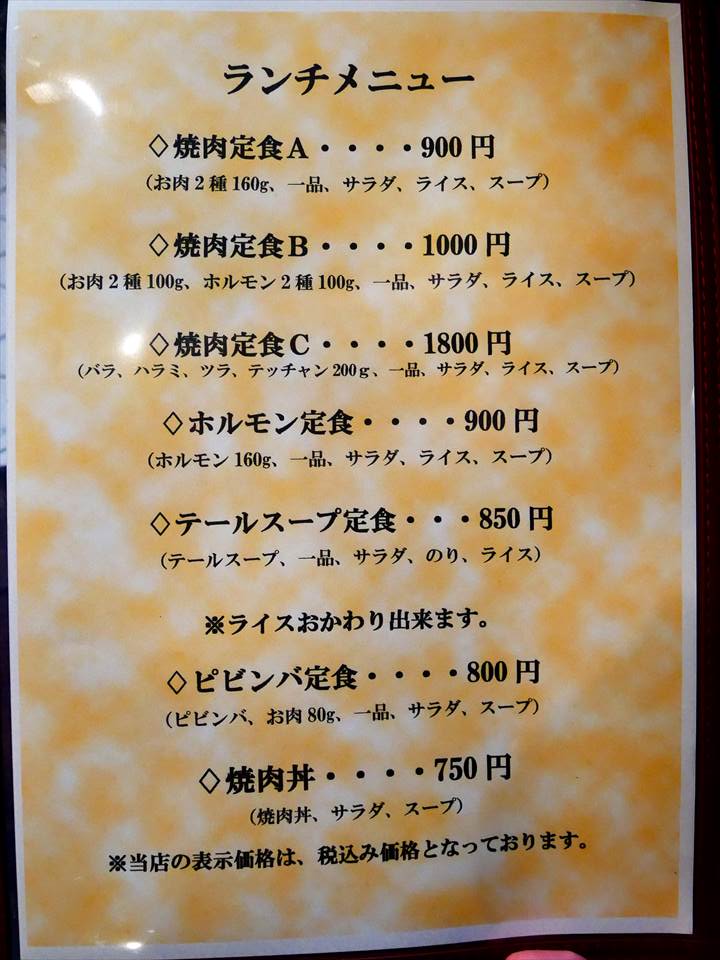 ランチメニュー
◇焼肉定食A・・・・900円
（お肉2種160g、一品、サラダ、ライス、スープ）
◇焼肉定食B・・・・1000円
（お肉2種100g、ホルモン2種100g、一品、サラダ、ライス、スープ）
◇焼肉定食C・・・・1800円
（バラ、ハラミ、ツラ、テッチャン200g、一品、サラダ、ライス、スープ）
◇ホルモン定食・・・・900円
（ホルモン160g、一品、サラダ、ライス、スープ）
◇テールスープ定食・・・850円
（テールスープ、一品、サラダ、のり、ライス）
※ライスおかわり出来ます。
◇ピビンバ定食・・・・800円
（ピビンバ、お肉80g、一品、サラダ、スープ）
◇焼肉丼・・・・750円
（焼肉丼、サラダ、スープ）
※当店の表示価格は、税込み価格となっております。